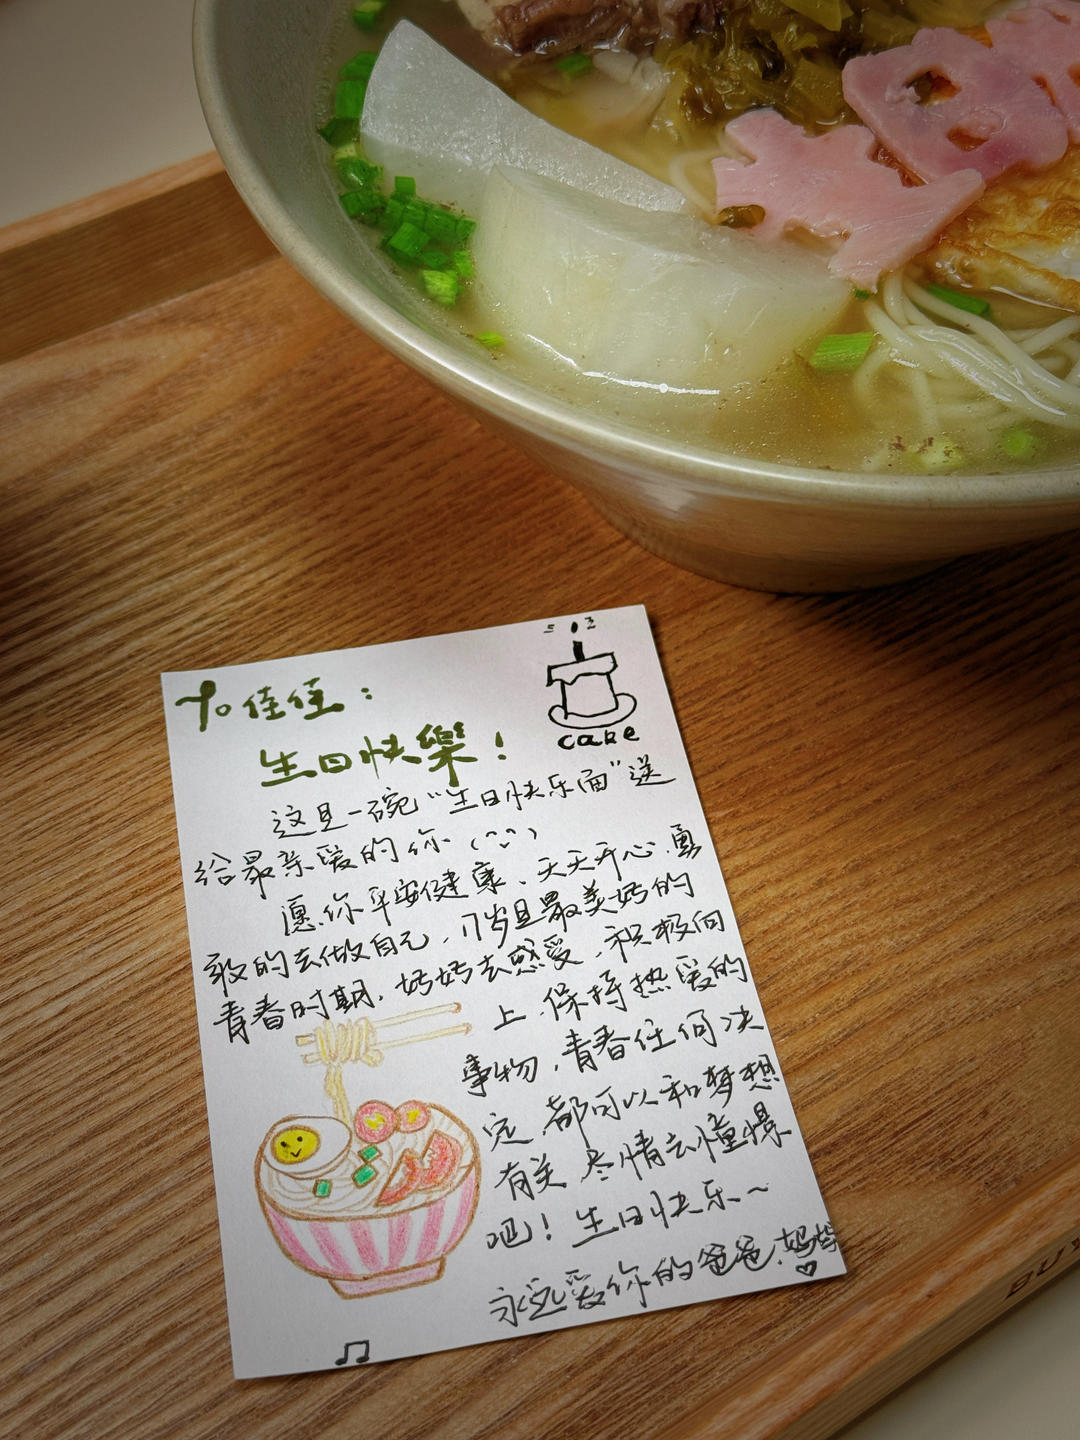 To 佳佳：
生日快樂！
cake
这是一碗“生日快乐面”送
给最亲爱的你
愿你平安健康、天天开心.勇
敢的去做自己，17岁是最美好的
青春时期，好好去感受.积极向
上.保持热爱的
事物，青春任何决
定.都可以和梦想
有关.尽情去憧憬
吧！生日快乐~
永远爱你的爸爸.妈妈